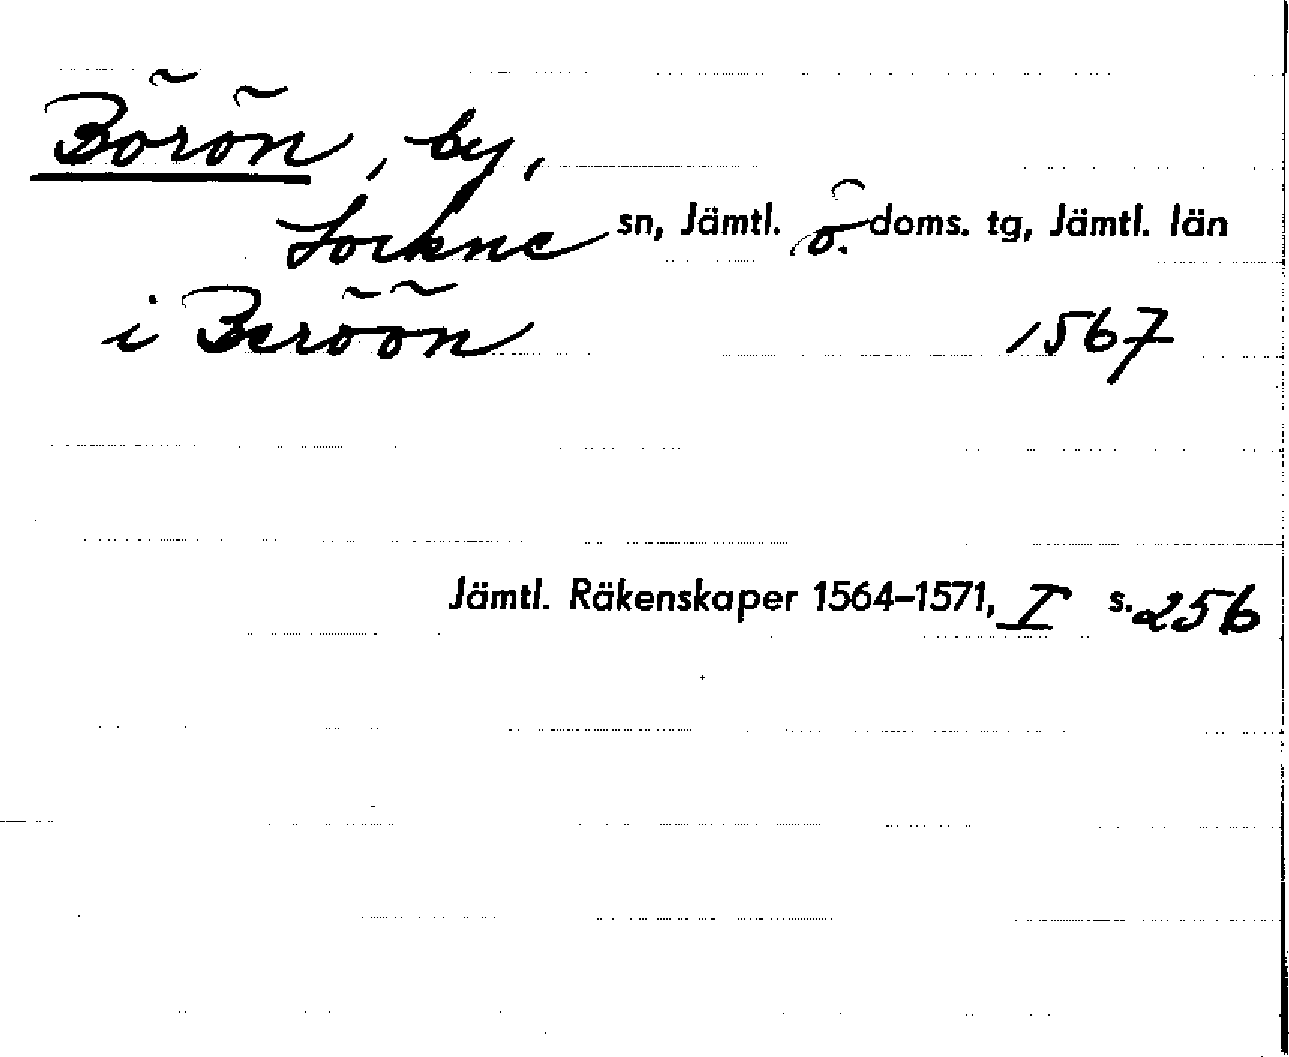 Börön, by,
Lockne sn, Jämtl. ö. doms. tg, Jämtl. län
i Beröön 1567
Jämtl. Räkenskaper 1564–1571, I s. 256